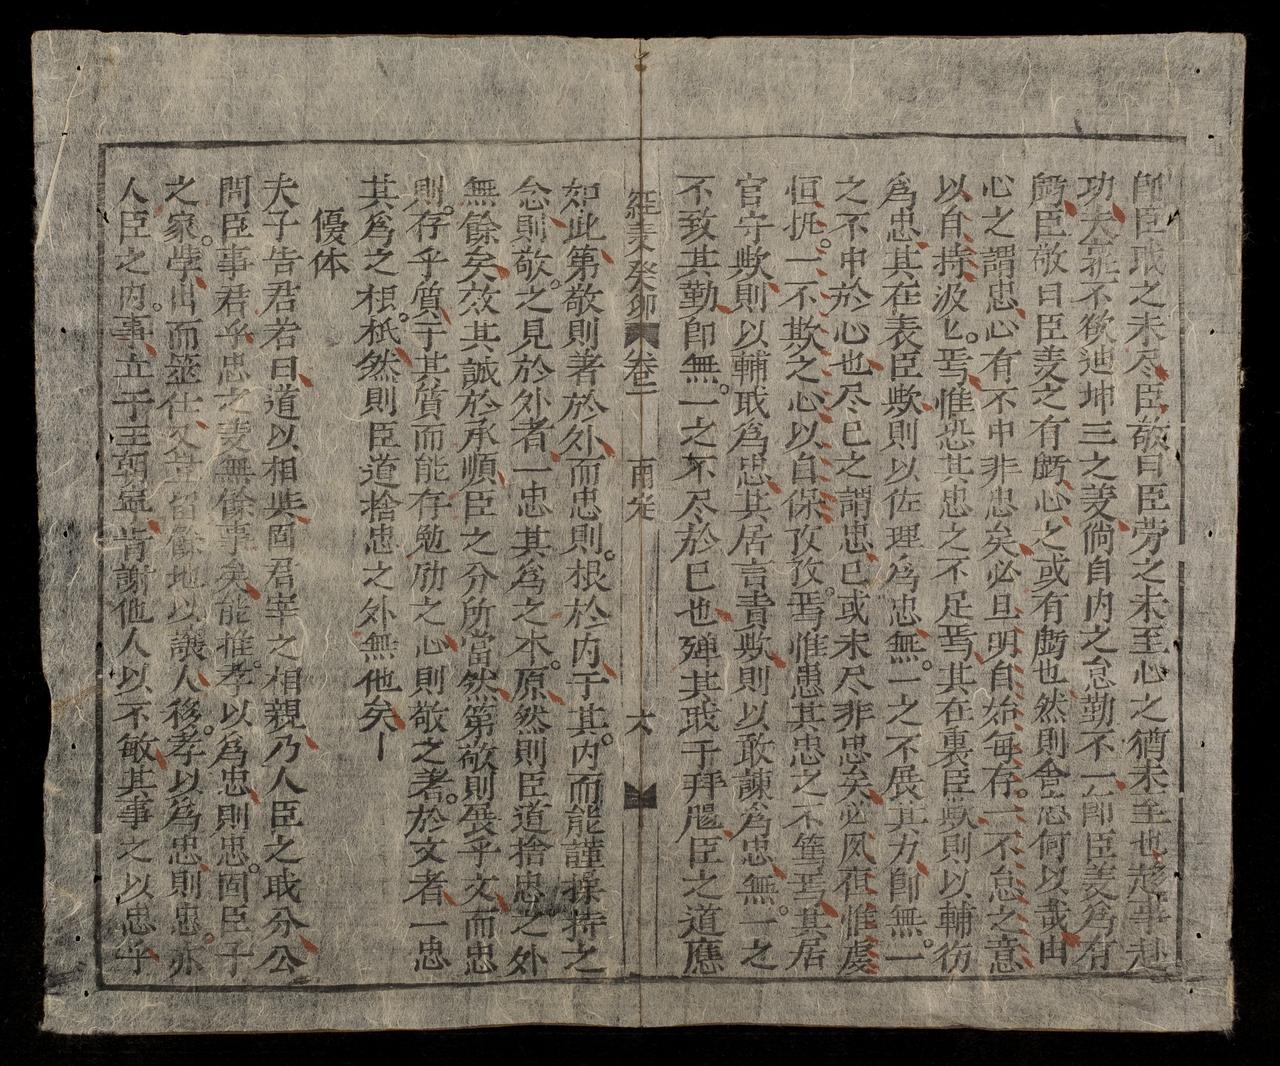 卽臣職之未尽臣敬曰臣労之未至心之猶未至也趁事赴
功夫寧不欲迪坤三之羑倘自内之怠勤不一卽臣羑為有
虧臣敬曰臣羑之有虧心之或有虧也然則舍忠何以哉由
心之謂忠心有不中非忠矣必旦明自始每存一不怠之意
以自持汲〻焉惟恐其忠之不足焉其在裏臣歟則以輔
為忠其在表臣歟則以佐理為忠無一之不展其力卽無一
之不中於心也尽己之謂忠己或未尽非忠矣必夙夜惟虔
恒抵一不欺之心以自保孜孜焉惟患其忠之不篤焉其居
官守歟則以輔職為忠其居言責歟則以敢諫為忠無一之
不致其勤卽無一之不尽於己也殫其職于拜颺臣之道應
卷二 雨定 六
如此第敬則著於外而忠則根於内于其内而能謹操持之
念則敬之見於外者一忠其為之本原然則臣道捨忠之外
無餘矣效其誠於承順臣之分所當然第敬則展乎文而忠
則存乎質于其質而能存勉励之心則敬之著於文者一忠
其為之根柢然則臣道捨忠之外無他矣
優体
夫子告君君曰道以相與固君宰之相親乃人臣之職分公
問臣事君乎忠之羑無餘事矣能推孝以為忠則忠固臣子
之家學出而筮仕又豈留餘地以議人移孝以為忠則忠亦
人臣之内事立于王朝寧肯謝他人以不敏其事之以忠乎